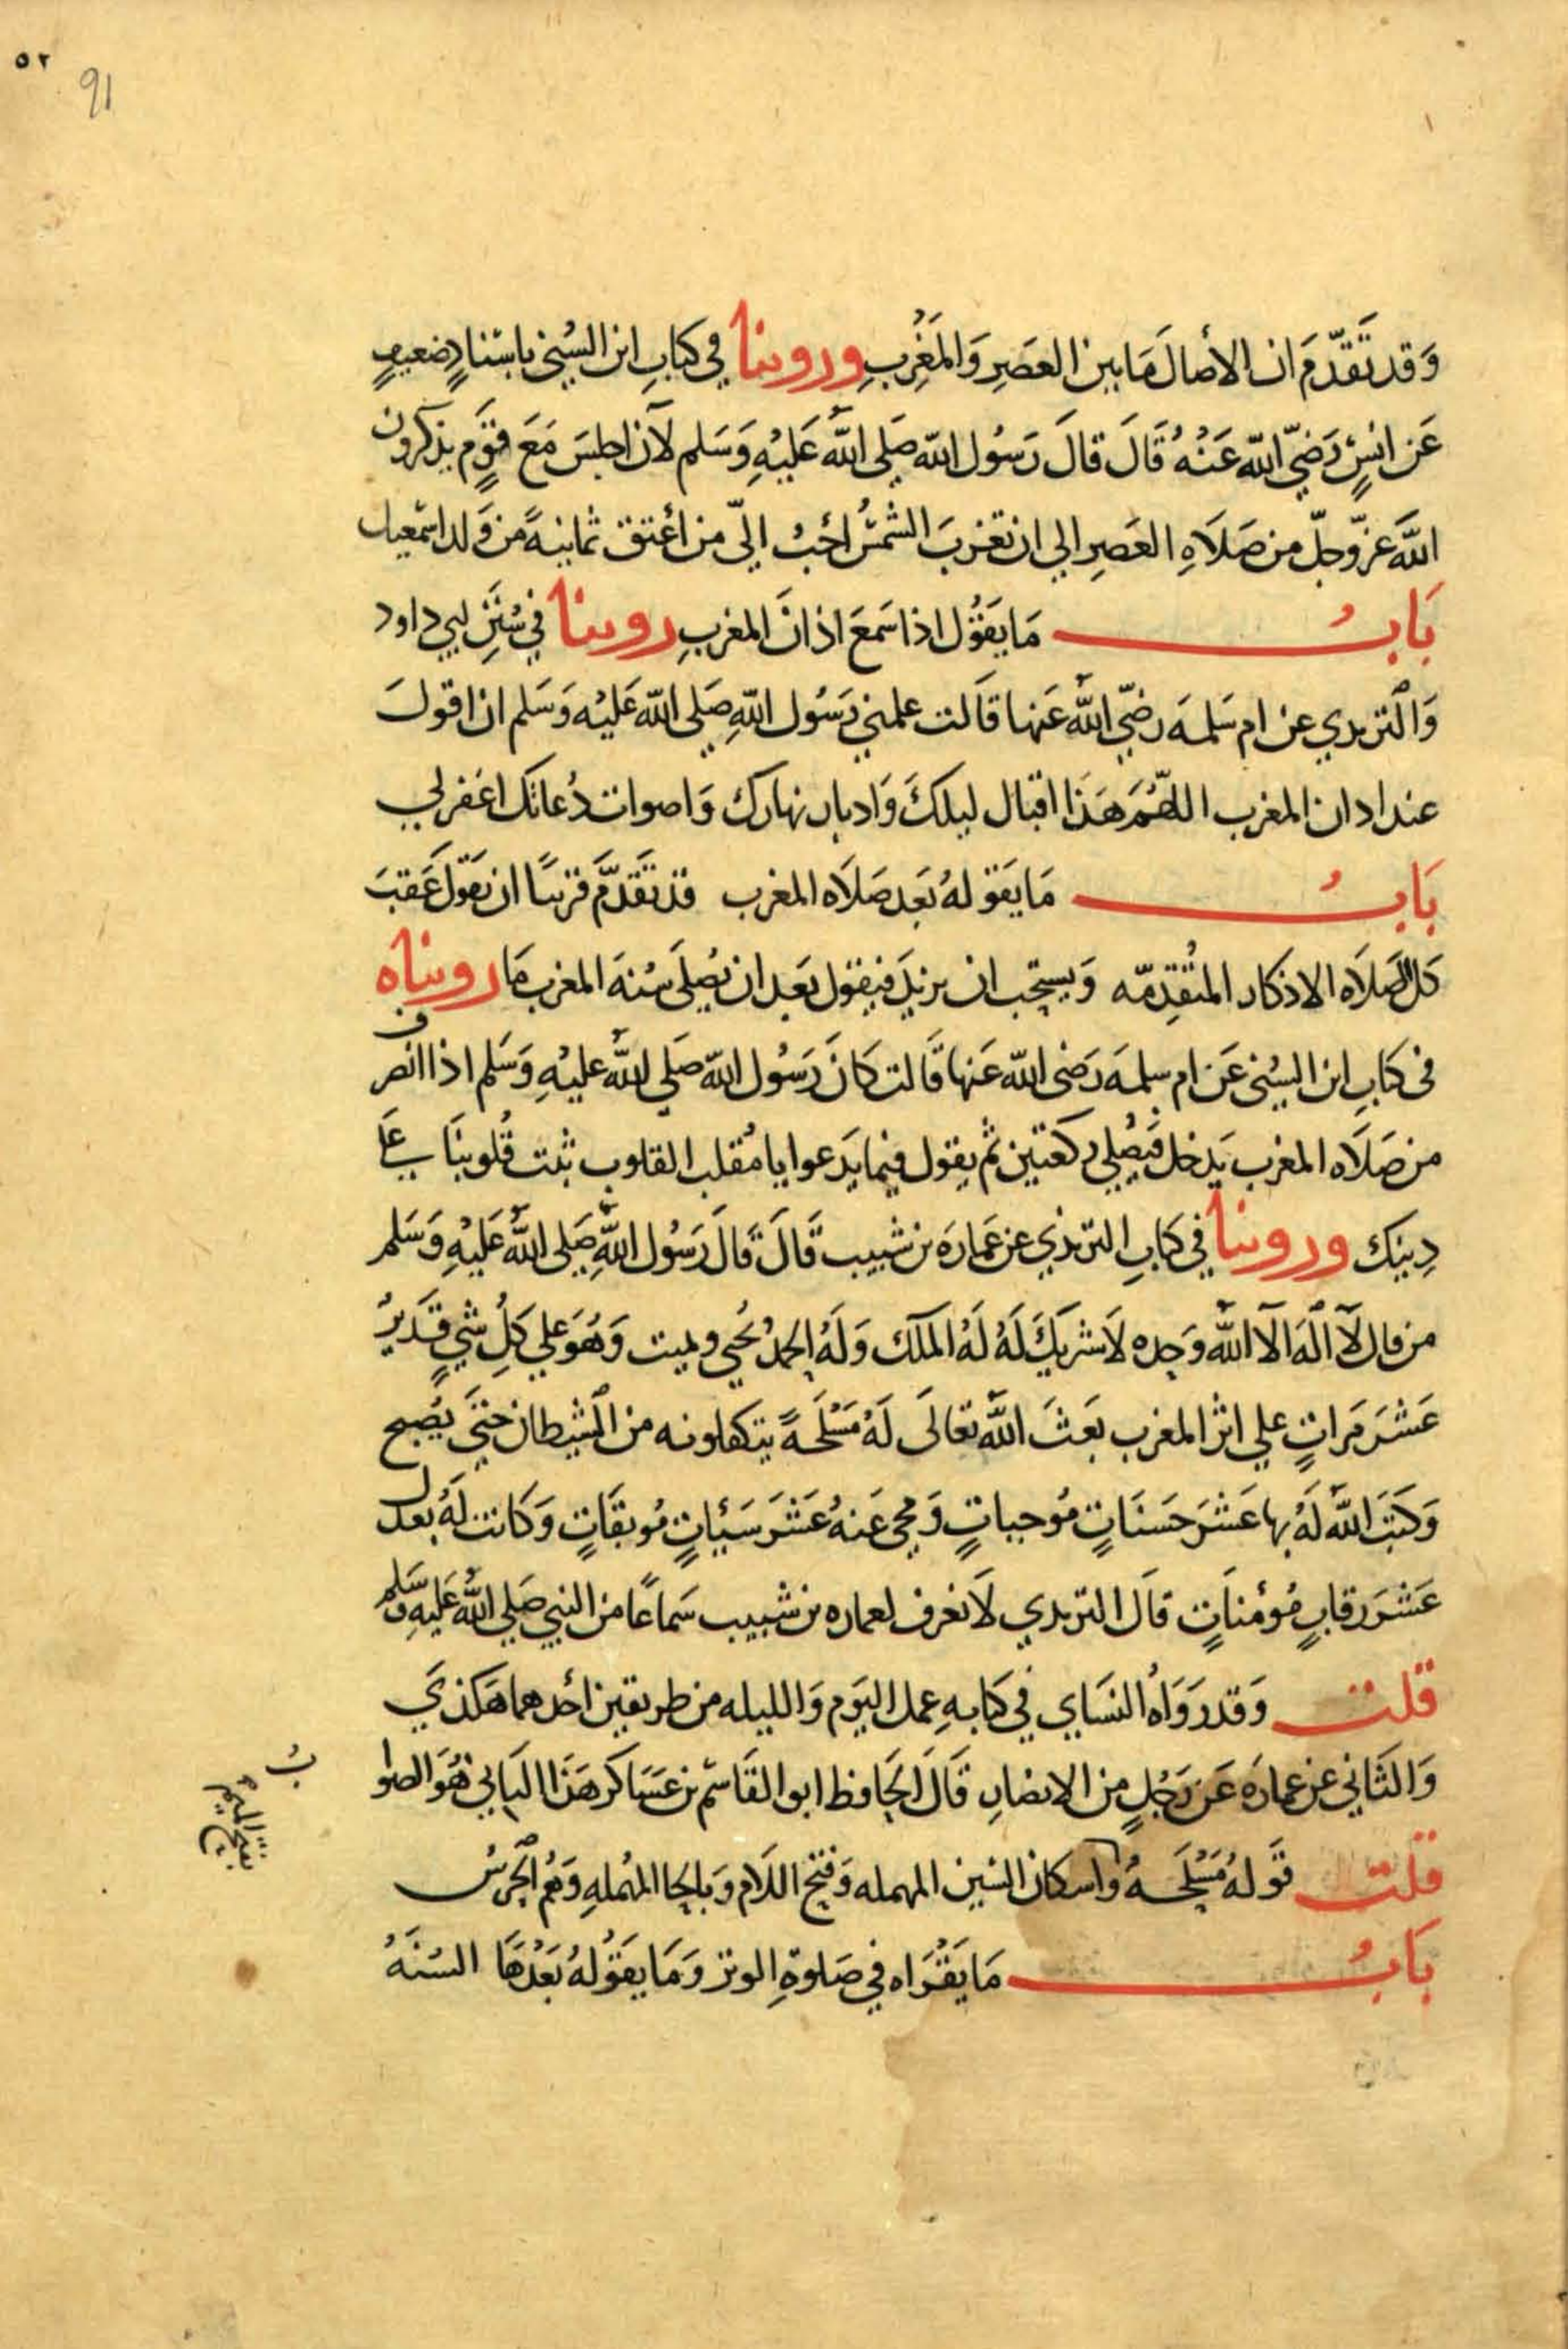 ٥٢
91
وَقد تَقَدّمَ ان الأصالَ مَا بين العصَرِ وَالمَغْربِ وروينا في كتابِ ابن السُني باسنادٍ ضعيفٍ
عَن انسٍ رَضيّ الله عَنْهُ قَالَ قالَ رَسُول الله صَلى اللّه عَليْهِ وَسَلم لأن اجلسَ مَعَ قوَمٍ يذكرون
اللّهَ عزّوجلّ من صَلَاهِ العصَرِ الي ان تغربَ الشمسُ احَبُ اليّ من اعْتق ثمانيةً من وَلد اسمْعيل
بَابُ مَا يقَوُل اذا سَمعَ اذانَ المغربِ روينا في سُنَنِ ابي داود
وَالترمدي عن ام سَلمه رضيّ اللّه عَنها قاَلت علمني رَسُول اللّهِ صَلى الله عَليْه وَسَلم ان اقولَ
عند ادان المغرب اللهُمَ هَذا اقبال ليلكَ وَادبار نهارك وَاصوات دُعاتك اغفر لي
بَابُ مَا يقَولهُ بَعد صَلَاه المغرب قد تقَدّم قريبًا ان يقَول عَقبَ
كل الصَلَاه الاذكار المتقدِمّه وَيستحِب ان يزيدَ فيقول بَعد ان يُصلىَ سُنهَ المغرب مَا رويناه
فى كتابِ ابن السُني عَن ام سلمهَ رَضى الله عَنها قَالت كَانَ رَسُول الله صَلي اللّه عليْهِ وَسَلم اذا انصرف
من صَلَاه المغرب يَدخل فَيُصلي ركعَتين ثم يقول فيما يَدعوا يا مُقلب القلوب ثبت قُلوبنَا علي
دِينك وروينا في كتابِ الترمذي عن عَمارَه بن شبيب قَالَ قَالَ رَسُول اللّهِ صَلي اللّه عَليْهِ وَسَلم
من قال لَا الَهَ الَا اللّه وَحِده لَا شريكَ لَهُ لَهُ الملك وَلَهُ الحمدُ يُحيي ويميت وَهُوَ علي كلِ شيٍ قَديرُ
عَشْرَ مَراتٍ علي اثر المغرب بعَثَ اللّه تعَالىَ لَهُ مَسْلَحةً يتكفلونه من الشيطان حتىَ يصُبح
وَكتبَ اللّه لَهُ بها عَشْرَ حَسَنَاتٍ مُوجباتٍ وَمحى عَنهُ عَشْرَ سَيئاتٍ مُوبقَاتٍ وَكانت لَهُ بعدل
عَشْرَ رقابٍ مُؤمناتٍ قالَ الترمدي لَا نعَرف لعماره بن شبيب سَماعًا من النبي صَلي اللّه عَليْهِ وَسَلم
قلت وَقد رَوَاهُ النسَاي في كتابهِ عمل اليَوم وَالليله من طريقين احَدهما هَكذيَ
وَالثاني عن عمارَه عَن رَجُلٍ من الانصارِ قالَ الحَافظ ابو القَاسم بن عَسَاكر هَذا الثاني هُوَ الصوا
ب
قلت قوَلهُ مَسْلحَهُ واسكان السين المهمله وَفتح اللَام وَبالحا المهُملهِ وَهُم الحَرسُ
بفتح الميم
بَابُ مَا يقَرَاه في صَلوةِ الوتر وَمَا يقَوُلهُ بَعْدهَا السُنَهُ